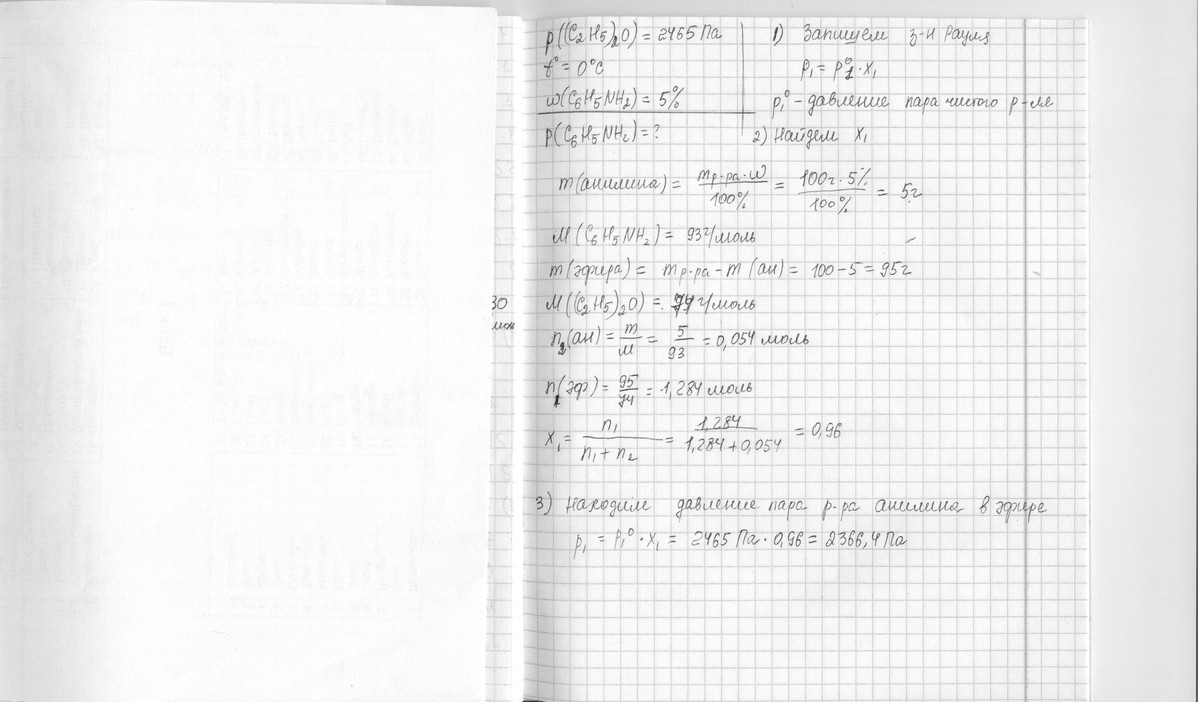 p((C₂H₅)₂O) = 2465 Па
t° = 0°C
ω(C₆H₅NH₂) = 5%
p(C₆H₅NH₂) = ?
1) Запишем з-н Рауля
p₁ = p₁⁰ · x₁
p₁⁰ - давление пара чистого р-ля
2) Найдем x₁
m(анилина) = mр-ра · ω / 100% = 100г · 5% / 100% = 5г
M(C₆H₅NH₂) = 93г/моль
m(эфира) = mр-ра - m(ан) = 100 - 5 = 95г
30
M((C₂H₅)₂O) = 74г/моль
n₂(ан) = m/M = 5/93 = 0,054 моль
n₁(эф) = 95/74 = 1,284 моль
x₁ = n₁ / (n₁ + n₂) = 1,284 / (1,284 + 0,054) = 0,96
3) Находим давление пара р-ра анилина в эфире
p₁ = p₁⁰ · x₁ = 2465 Па · 0,96 = 2366,4 Па